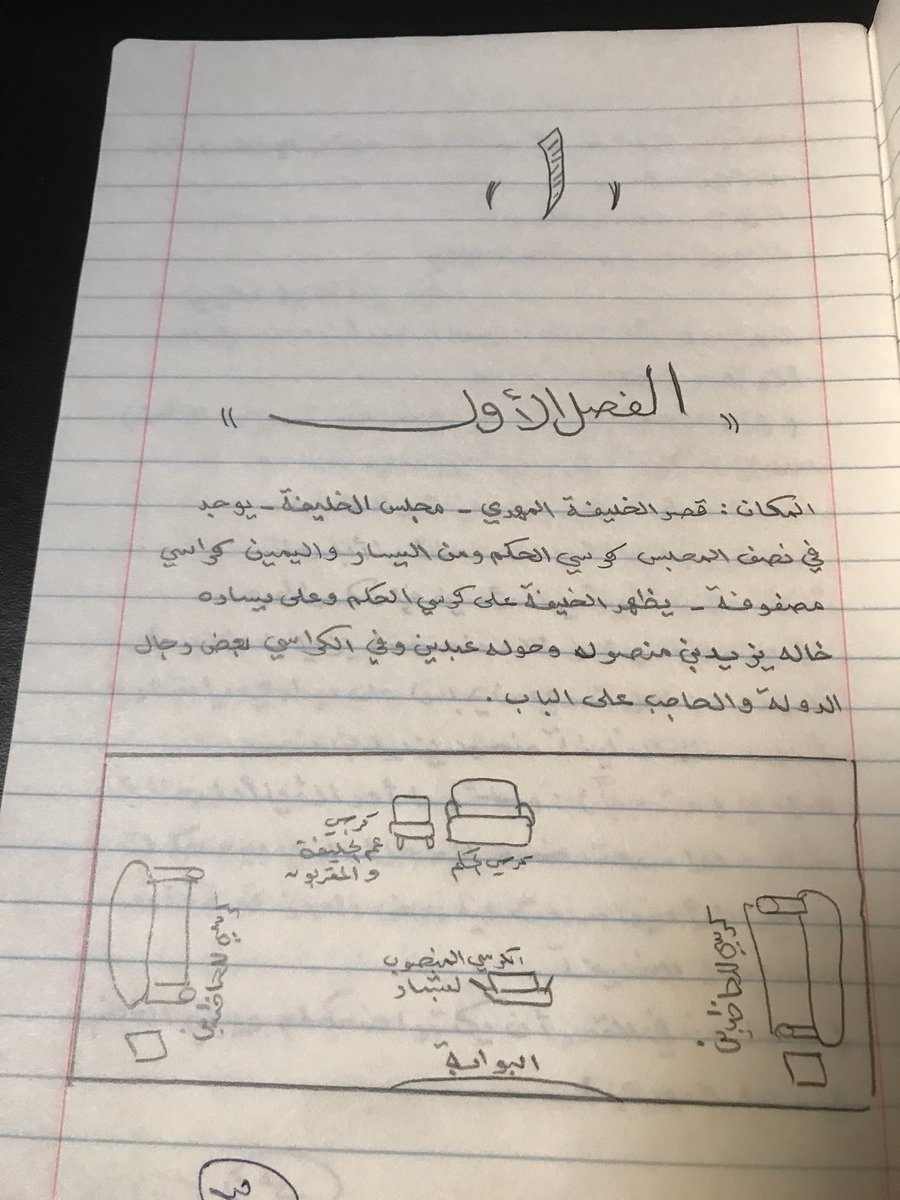 ( ١ )
" الفصل الأول "
المكان : قصر الخليفة المهدي - مجلس الخليفة - يوجد
في نصف المجلس كرسي الحكم ومن اليسار واليمين كراسي
مصفوفة - يظهر الخليفة على كرسي الحكم وعلى يساره
خاله يزيد بن منصور وحوله عبدين وفي الكراسي بعض رجال
الدولة والحاجب على الباب .
كرسي الحكم
كرسي
عم الخليفة
والمقربون
كرسي للحاضرين
كرسي للحاضرين
الكرسي المنصوب
لبشار
البوابة
3